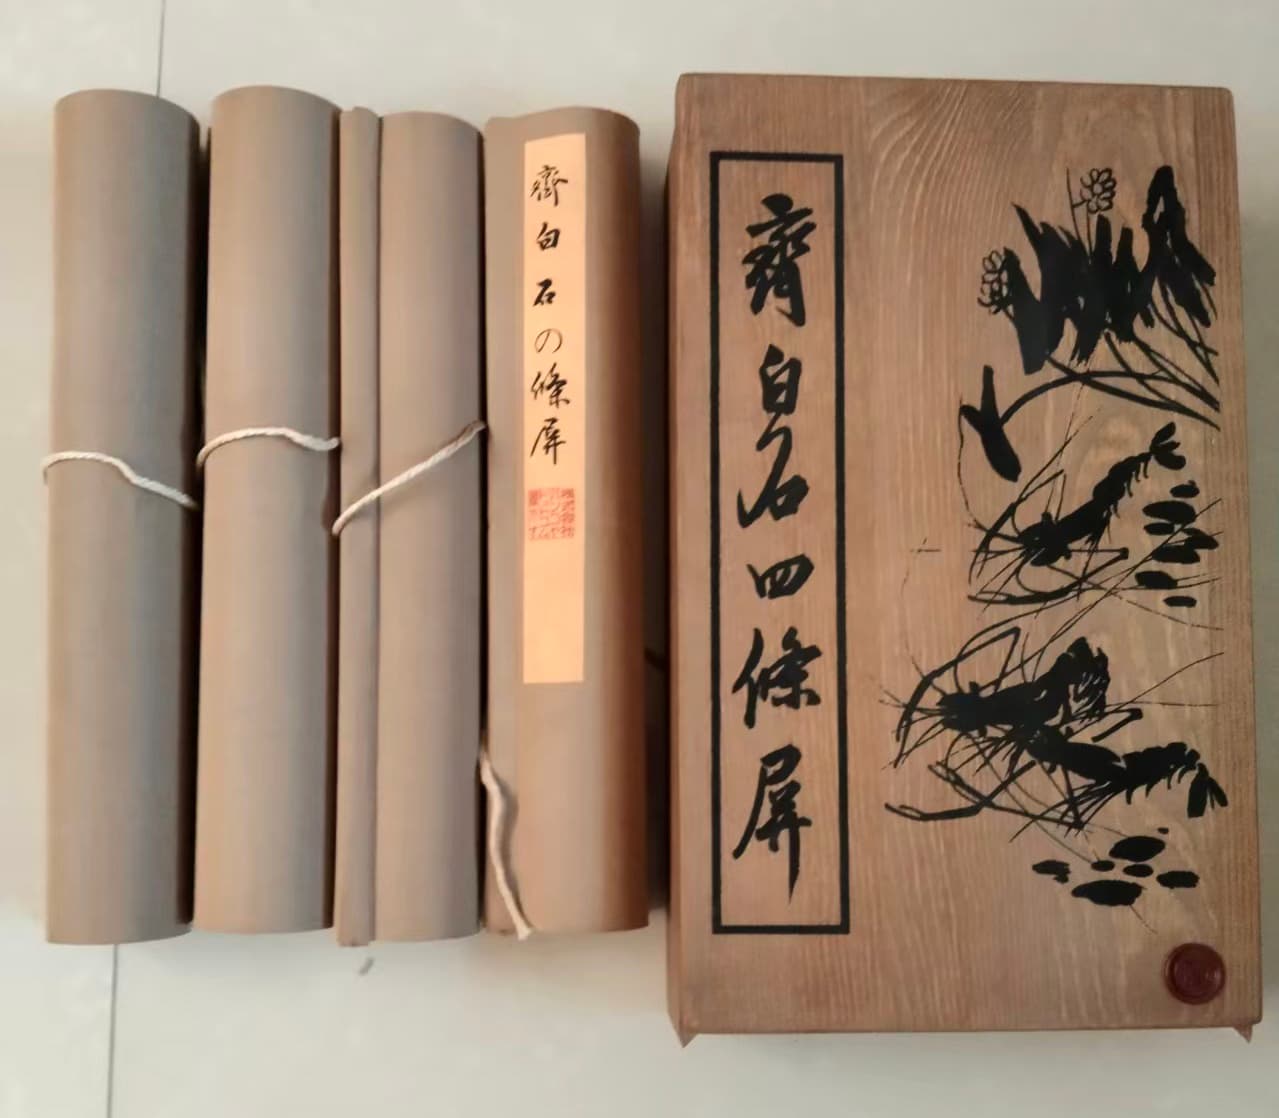 齊白石の條屏
齊白石四條屏